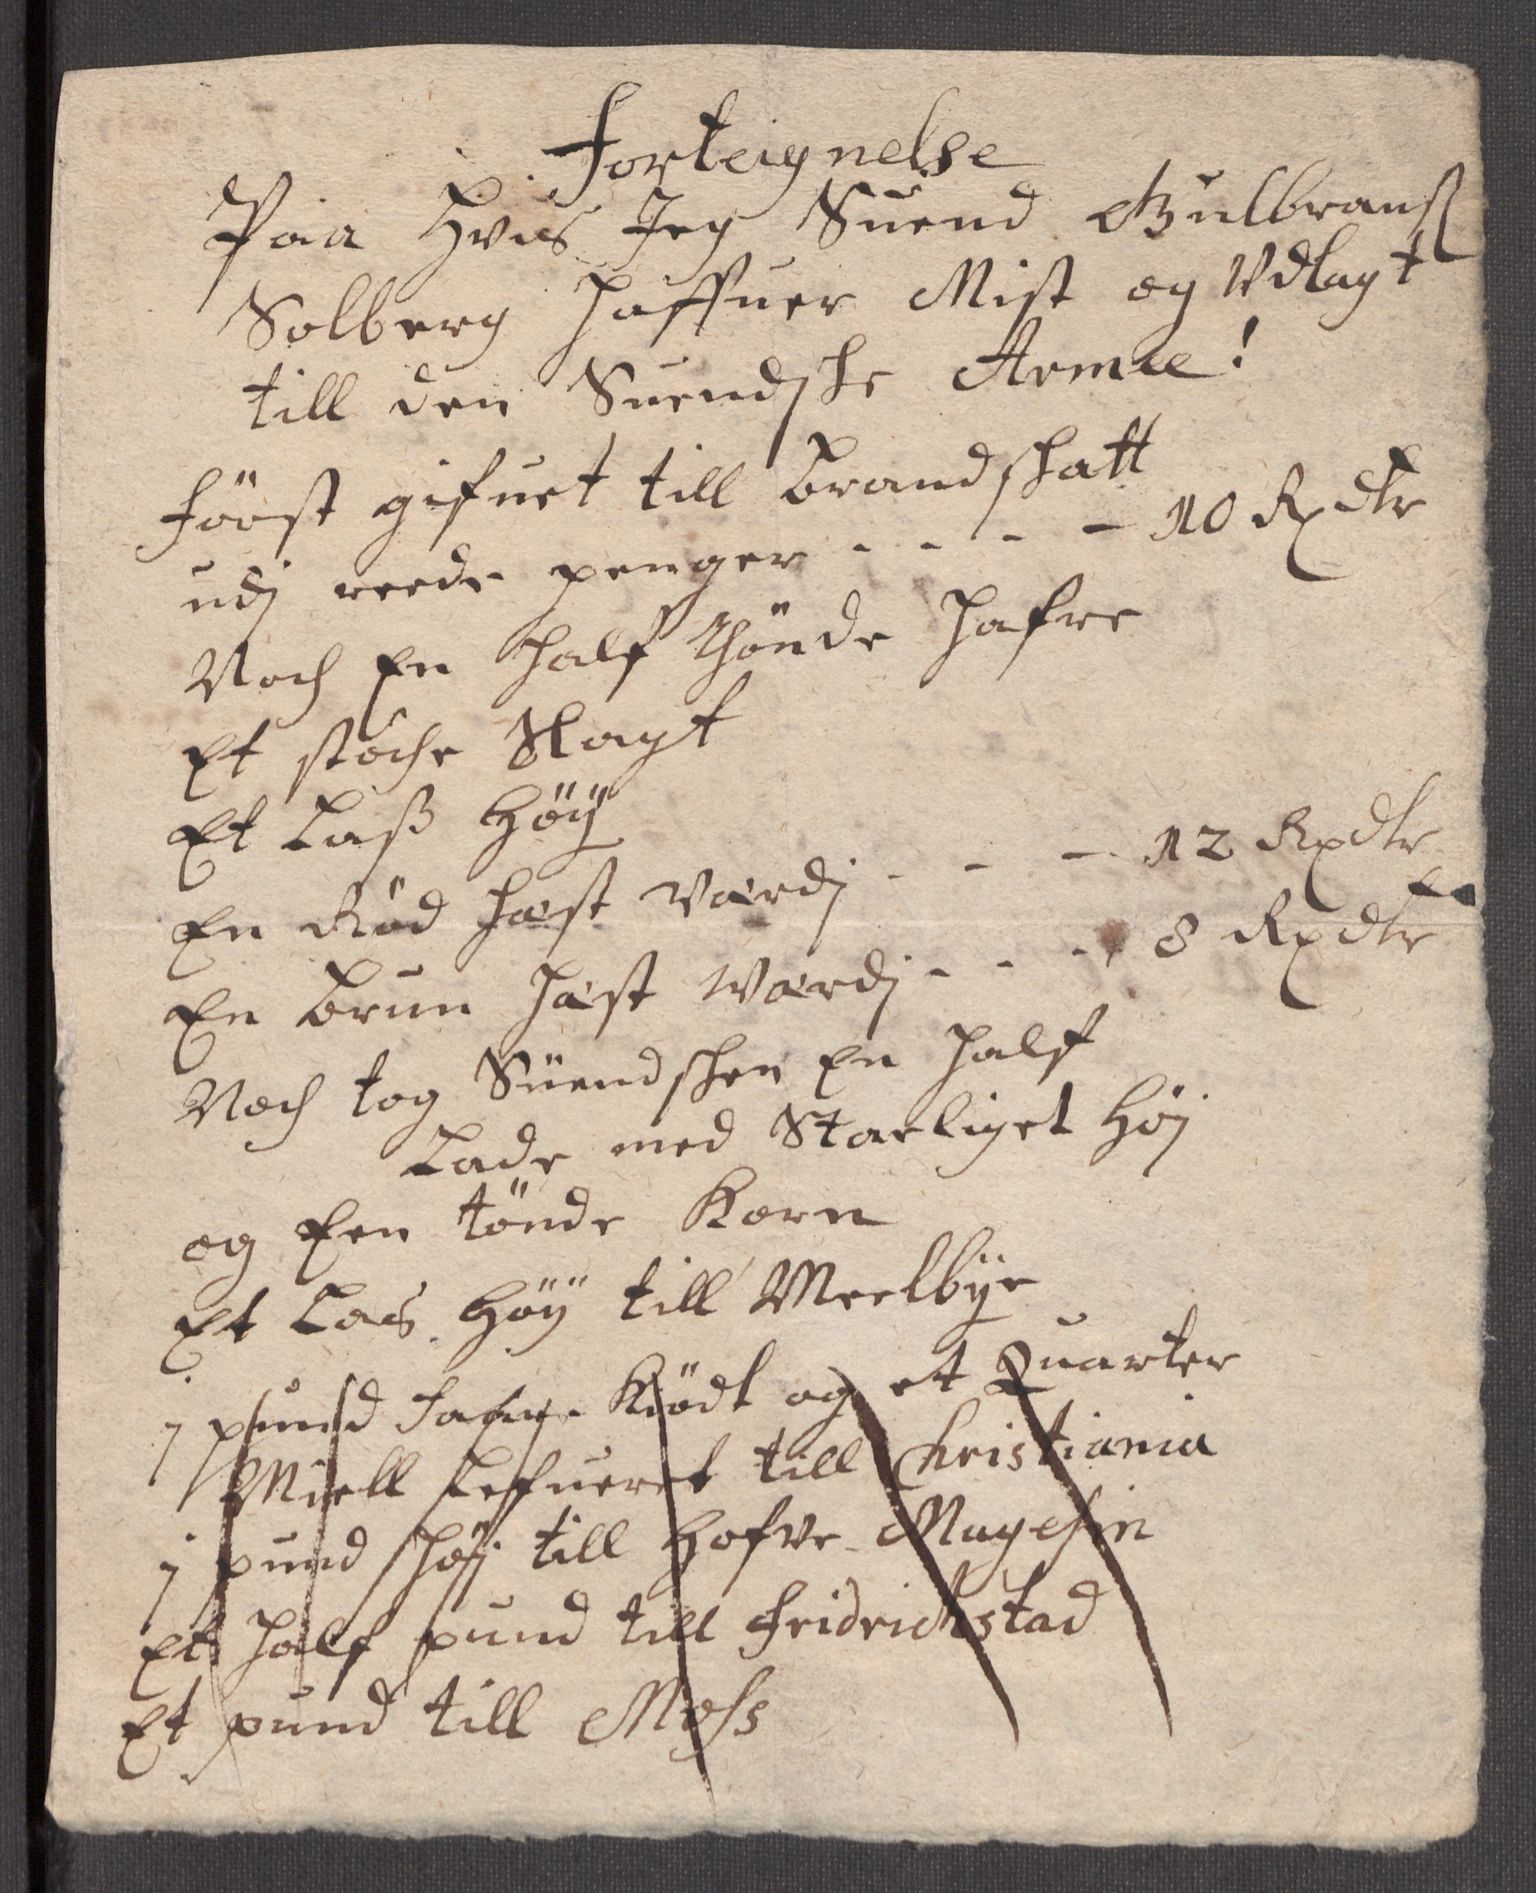 Forteignelse
Paa Hvis Jeg Suend Gulbranß
Solberg haffuer Mist og Vdlagt
till den Suendske Armee!
föörst gifuet till Brandskatt
udj reede penger - - - - 10 Rxdlr
Noch En half thönde hafre
Et støche Slagt
Et Laß Höÿ
En Rød hæst Værdj - - - 12 Rxdlr
En Brun hæst Værdj - - - 8 Rxdlr
Noch tog Süendschen En half
Lade med Staeliget Höj
og Een tönde Korn
Et Las Höÿ till Meelbÿe
j pund faare Kiødt og et Quarter
Miell Lefueret till Christiania
j pund høj till Hofve Magesin
Et half pund till Fridrichstad
Et pund till Moss